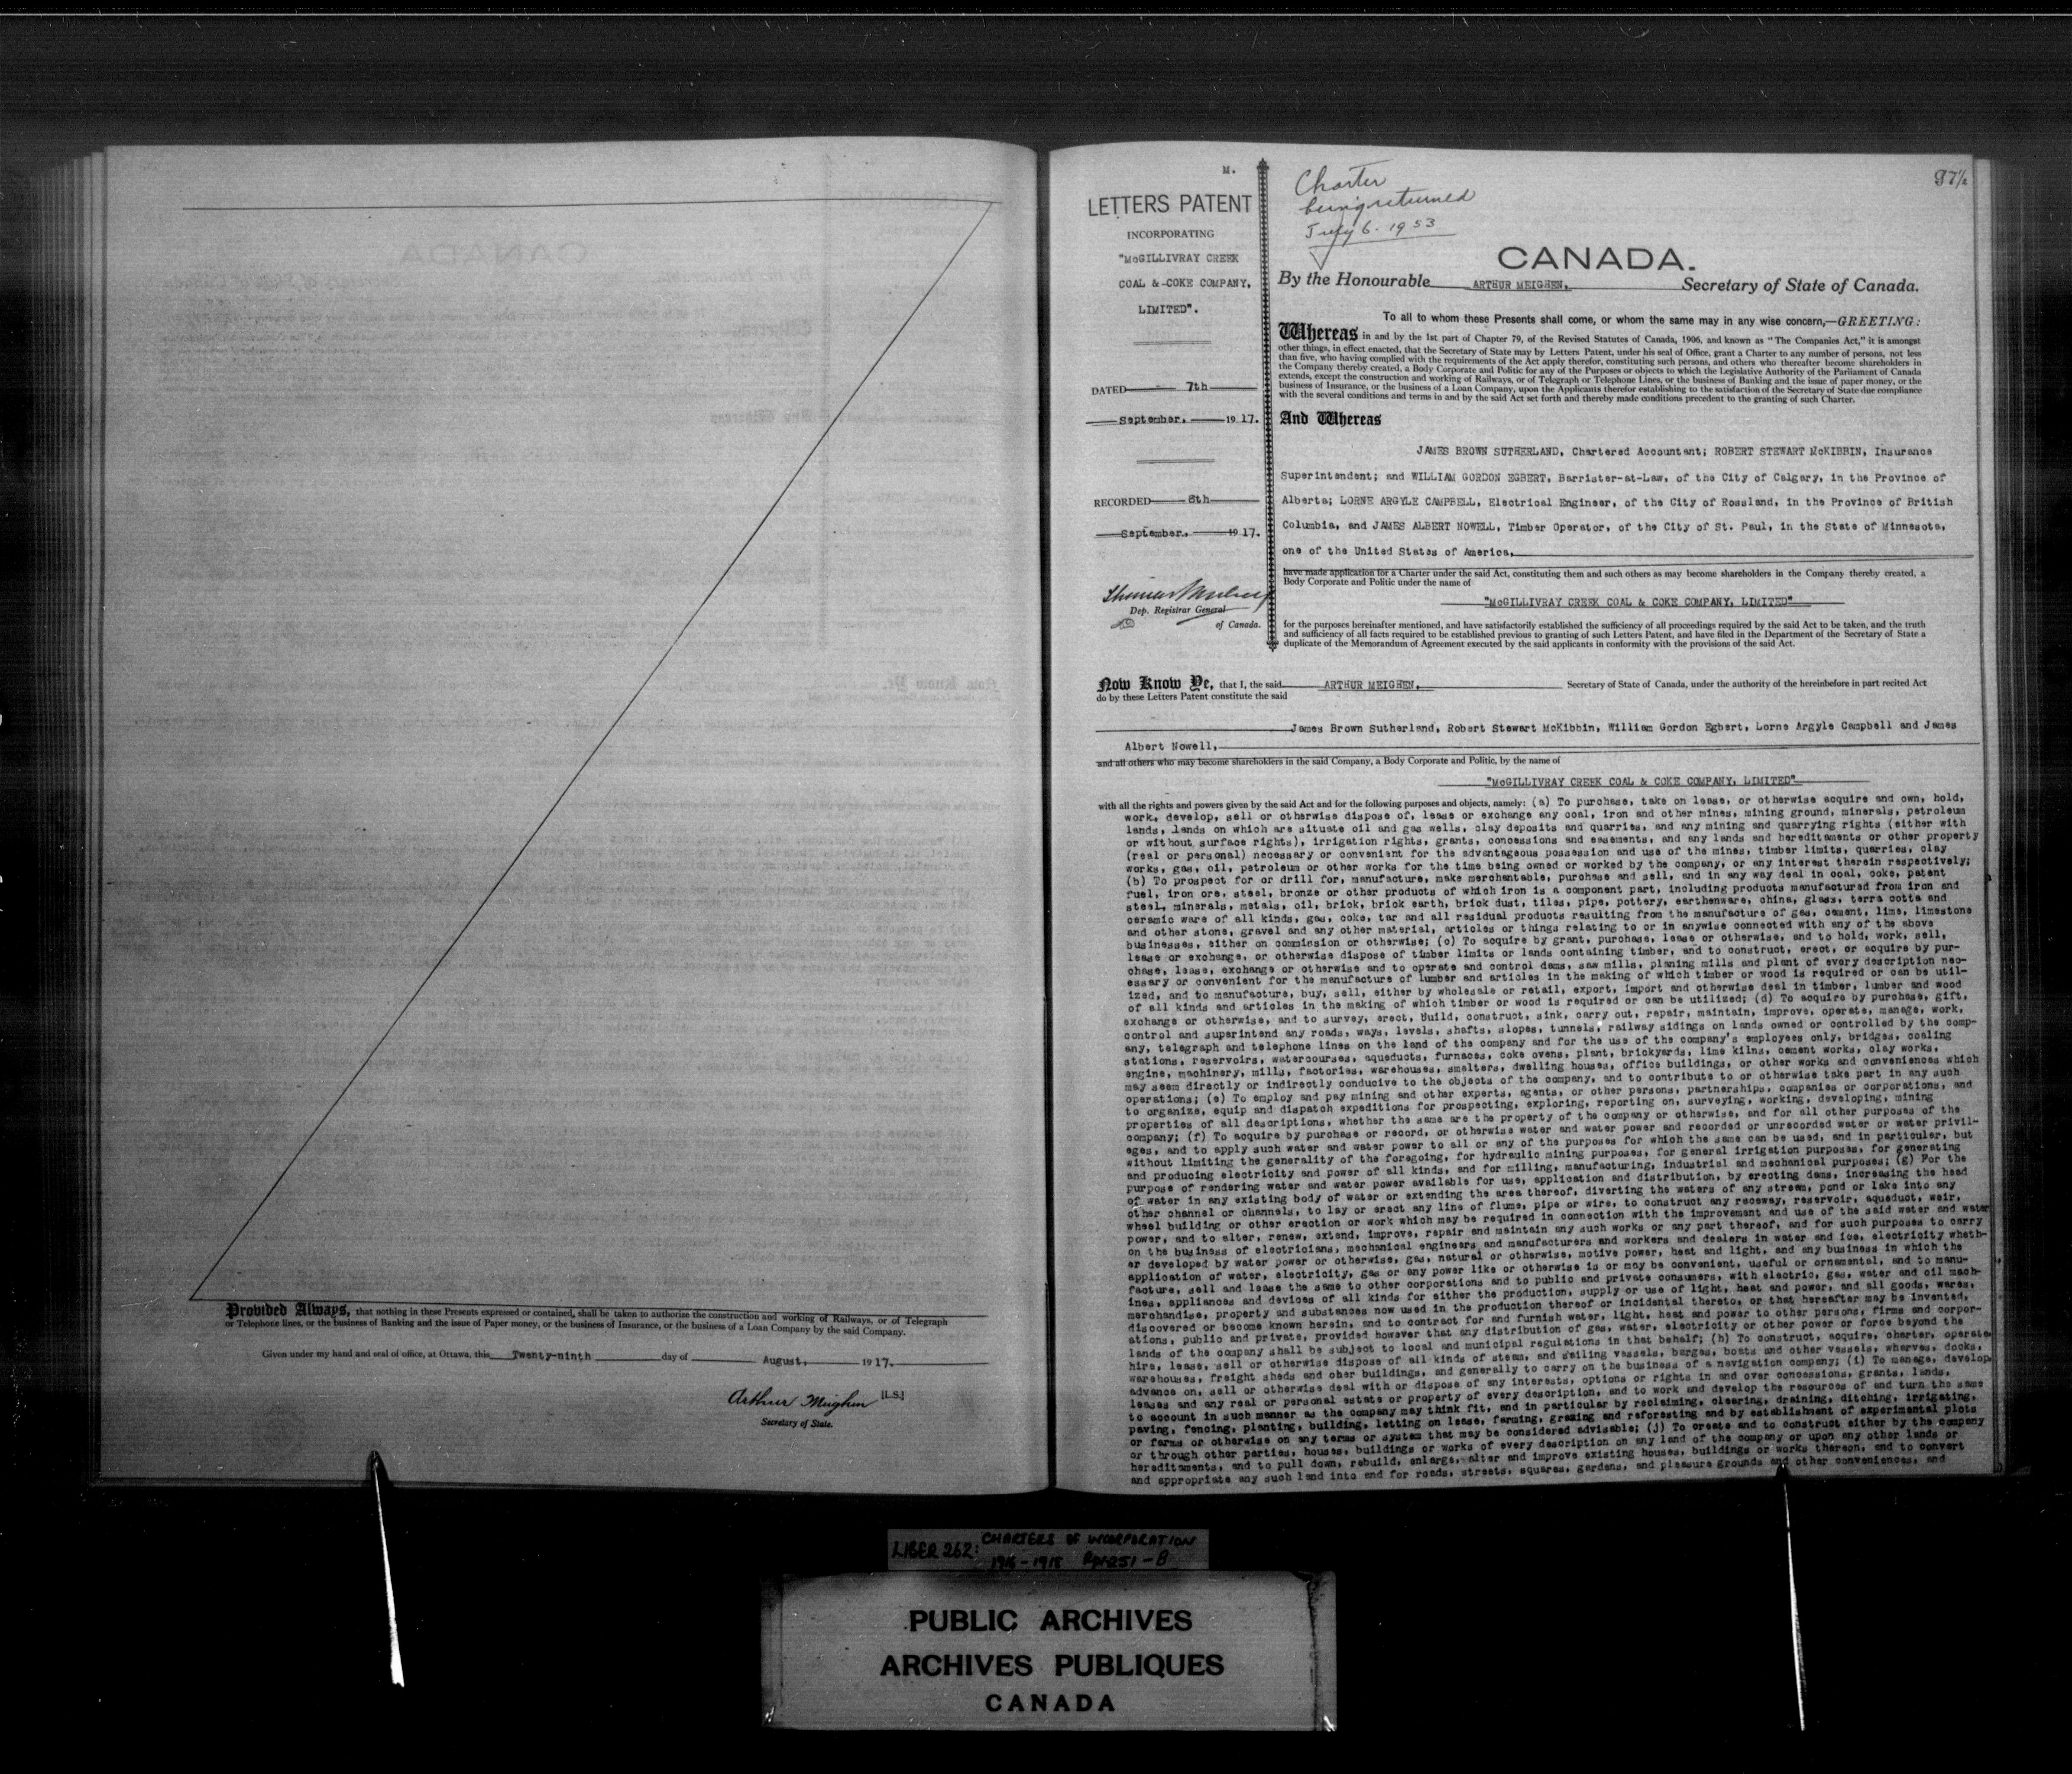 Provided Always, that nothing in these Presents expressed or contained, shall be taken to authorize the construction and working of Railways, or of Telegraph
or Telephone lines, or the business of Banking and the issue of Paper money, or the business of Insurance, or the business of a Loan Company by the said Company.
Given under my hand and seal of office, at Ottawa, this Twenty-ninth day of August, 1917.
Arthur Meighen [L.S.]
Secretary of State.
M.
LETTERS PATENT
INCORPORATING
"McGILLIVRAY CREEK
COAL & COKE COMPANY,
LIMITED".
DATED 7th
September, 1917.
RECORDED 8th
September, 1917.
Dep. Registrar General
of Canada.
Charter
being returned
July 6. 1953
97½
CANADA.
By the Honourable ARTHUR MEIGHEN, Secretary of State of Canada.
To all to whom these Presents shall come, or whom the same may in any wise concern,—GREETING:
Whereas in and by the 1st part of Chapter 79, of the Revised Statutes of Canada, 1906, and known as "The Companies Act," it is amongst
other things, in effect enacted, that the Secretary of State may by Letters Patent, under his seal of Office, grant a Charter to any number of persons, not less
than five, who having complied with the requirements of the Act apply therefor, constituting such persons, and others who thereafter become shareholders in
the Company thereby created, a Body Corporate and Politic for any of the Purposes or objects to which the Legislative Authority of the Parliament of Canada
extends, except the construction and working of Railways, or of Telegraph or Telephone Lines, or the business of Banking and the issue of paper money, or the
business of Insurance, or the business of a Loan Company, upon the Applicants therefor establishing to the satisfaction of the Secretary of State due compliance
with the several conditions and terms in and by the said Act set forth and thereby made conditions precedent to the granting of such Charter.
And Whereas
JAMES BROWN SUTHERLAND, Chartered Accountant; ROBERT STEWART McKIBBIN, Insurance
Superintendent; and WILLIAM GORDON EGBERT, Barrister-at-Law, of the City of Calgary, in the Province of
Alberta; LORNE ARGYLE CAMPBELL, Electrical Engineer, of the City of Rossland, in the Province of British
Columbia, and JAMES ALBERT NOWELL, Timber Operator, of the City of St. Paul, in the State of Minnesota,
one of the United States of America,
have made application for a Charter under the said Act, constituting them and such others as may become shareholders in the Company thereby created, a
Body Corporate and Politic under the name of
"McGILLIVRAY CREEK COAL & COKE COMPANY, LIMITED"
for the purposes hereinafter mentioned, and have satisfactorily established the sufficiency of all proceedings required by the said Act to be taken, and the truth
and sufficiency of all facts required to be established previous to granting of such Letters Patent, and have filed in the Department of the Secretary of State a
duplicate of the Memorandum of Agreement executed by the said applicants in conformity with the provisions of the said Act.
Now Know Ye, that I, the said ARTHUR MEIGHEN, Secretary of State of Canada, under the authority of the hereinbefore in part recited Act
do by these Letters Patent constitute the said
James Brown Sutherland, Robert Stewart McKibbin, William Gordon Egbert, Lorne Argyle Campbell and James
Albert Nowell,
and all others who may become shareholders in the said Company, a Body Corporate and Politic, by the name of
"McGILLIVRAY CREEK COAL & COKE COMPANY, LIMITED"
with all the rights and powers given by the said Act and for the following purposes and objects, namely: (a) To purchase, take on lease, or otherwise acquire and own, hold,
work, develop, sell or otherwise dispose of, lease or exchange any coal, iron and other mines, mining ground, minerals, petroleum
lands, lands on which are situate oil and gas wells, clay deposits and quarries, and any mining and quarrying rights (either with
or without surface rights), irrigation rights, grants, concessions and easements, and any lands and hereditaments or other property
(real or personal) necessary or convenient for the advantageous possession and use of the mines, timber limits, quarries, clay
works, gas, oil, petroleum or other works for the time being owned or worked by the company, or any interest therein respectively;
(b) To prospect for or drill for, manufacture, make merchantable, purchase and sell, and in any way deal in coal, coke, patent
fuel, iron ore, steel, bronze or other products of which iron is a component part, including products manufactured from iron and
steel, minerals, metals, oil, brick, brick earth, brick dust, tiles, pipe, pottery, earthenware, china, glass, terra cotta and
ceramic ware of all kinds, gas, coke, tar and all residual products resulting from the manufacture of gas, cement, lime, limestone
and other stone, gravel and any other material, articles or things relating to or in anywise connected with any of the above
businesses, either on commission or otherwise; (c) To acquire by grant, purchase, lease or otherwise, and to hold, work, sell,
lease or exchange, or otherwise dispose of timber limits or lands containing timber, and to construct, erect, or acquire by pur-
chase, lease, exchange or otherwise and to operate and control dams, saw mills, planing mills and plant of every description nec-
essary or convenient for the manufacture of lumber and articles in the making of which timber or wood is required or can be util-
ized, and to manufacture, buy, sell, either by wholesale or retail, export, import and otherwise deal in timber, lumber and wood
of all kinds and articles in the making of which timber or wood is required or can be utilized; (d) To acquire by purchase, gift,
exchange or otherwise, and to survey, erect, build, construct, sink, carry out, repair, maintain, improve, operate, manage, work,
control and superintend any roads, ways, levels, shafts, slopes, tunnels, railway sidings on lands owned or controlled by the comp-
any, telegraph and telephone lines on the land of the company and for the use of the company's employees only, bridges, coaling
stations, reservoirs, watercourses, aqueducts, furnaces, coke ovens, plant, brickyards, lime kilns, cement works, clay works,
engine, machinery, mills, factories, warehouses, smelters, dwelling houses, office buildings, or other works and conveniences which
may seem directly or indirectly conducive to the objects of the company, and to contribute to or otherwise take part in any such
operations; (e) To employ and pay mining and other experts, agents, or other persons, partnerships, companies or corporations, and
to organize, equip and dispatch expeditions for prospecting, exploring, reporting on, surveying, working, developing, mining
properties of all descriptions, whether the same are the property of the company or otherwise, and for all other purposes of the
company; (f) To acquire by purchase or record, or otherwise water and water power and recorded or unrecorded water or water privil-
eges, and to apply such water and water power to all or any of the purposes for which the same can be used, and in particular, but
without limiting the generality of the foregoing, for hydraulic mining purposes, for general irrigation purposes, for generating
and producing electricity and power of all kinds, and for milling, manufacturing, industrial and mechanical purposes; (g) For the
purpose of rendering water and water power available for use, application and distribution, by erecting dams, increasing the head
of water in any existing body of water or extending the area thereof, diverting the waters of any stream, pond or lake into any
other channel or channels, to lay or erect any line of flume, pipe or wire, to construct any raceway, reservoir, aqueduct, weir,
wheel building or other erection or work which may be required in connection with the improvement and use of the said water and water
power, and to alter, renew, extend, improve, repair and maintain any such works or any part thereof, and for such purposes to carry
on the business of electricians, mechanical engineers and manufacturers and workers and dealers in water and ice, electricity wheth-
er developed by water power or otherwise, gas, natural or otherwise, motive power, heat and light, and any business in which the
application of water, electricity, gas or any power like or otherwise is or may be convenient, useful or ornamental, and to manu-
facture, sell and lease the same to other corporations and to public and private consumers, with electric, gas, water and oil mach-
ines, appliances and devices of all kinds for either the production, supply or use of light, heat and power, and all goods, wares,
merchandise, property and substances now used in the production thereof or incidental thereto, or that hereafter may be invented,
discovered or become known herein, and to contract for and furnish water, light, heat and power to other persons, firms and corpor-
ations, public and private, provided however that any distribution of gas, water, electricity or other power or force beyond the
lands of the company shall be subject to local and municipal regulations in that behalf; (h) To construct, acquire, charter, operate
hire, lease, sell or otherwise dispose of all kinds of steam, and sailing vessels, barges, boats and other vessels, wharves, docks,
warehouses, freight sheds and oher buildings, and generally to carry on the business of a navigation company; (i) To manage, develop
advance on, sell or otherwise deal with or dispose of any interests, options or rights in and over concessions, grants, lands,
leases and any real or personal estate or property of every description, and to work and develop the resources of and turn the same
to account in such manner as the company may think fit, and in particular by reclaiming, clearing, draining, ditching, irrigating,
paving, fencing, planting, building, letting on lease, farming, grazing and reforesting and by establishment of experimental plots
or farms or otherwise on any terms or system that may be considered advisable; (j) To create and to construct either by the company
or through other parties, houses, buildings or works of every description on any land of the company or upon any other lands or
hereditaments, and to pull down, rebuild, enlarge, alter and improve existing houses, buildings or works thereon, and to convert
and appropriate any such land into and for roads, streets, squares, gardens, and pleasure grounds and other conveniences, and
LIBER 262: CHARTERS OF INCORPORATION
1916-1918
PUBLIC ARCHIVES
ARCHIVES PUBLIQUES
CANADA